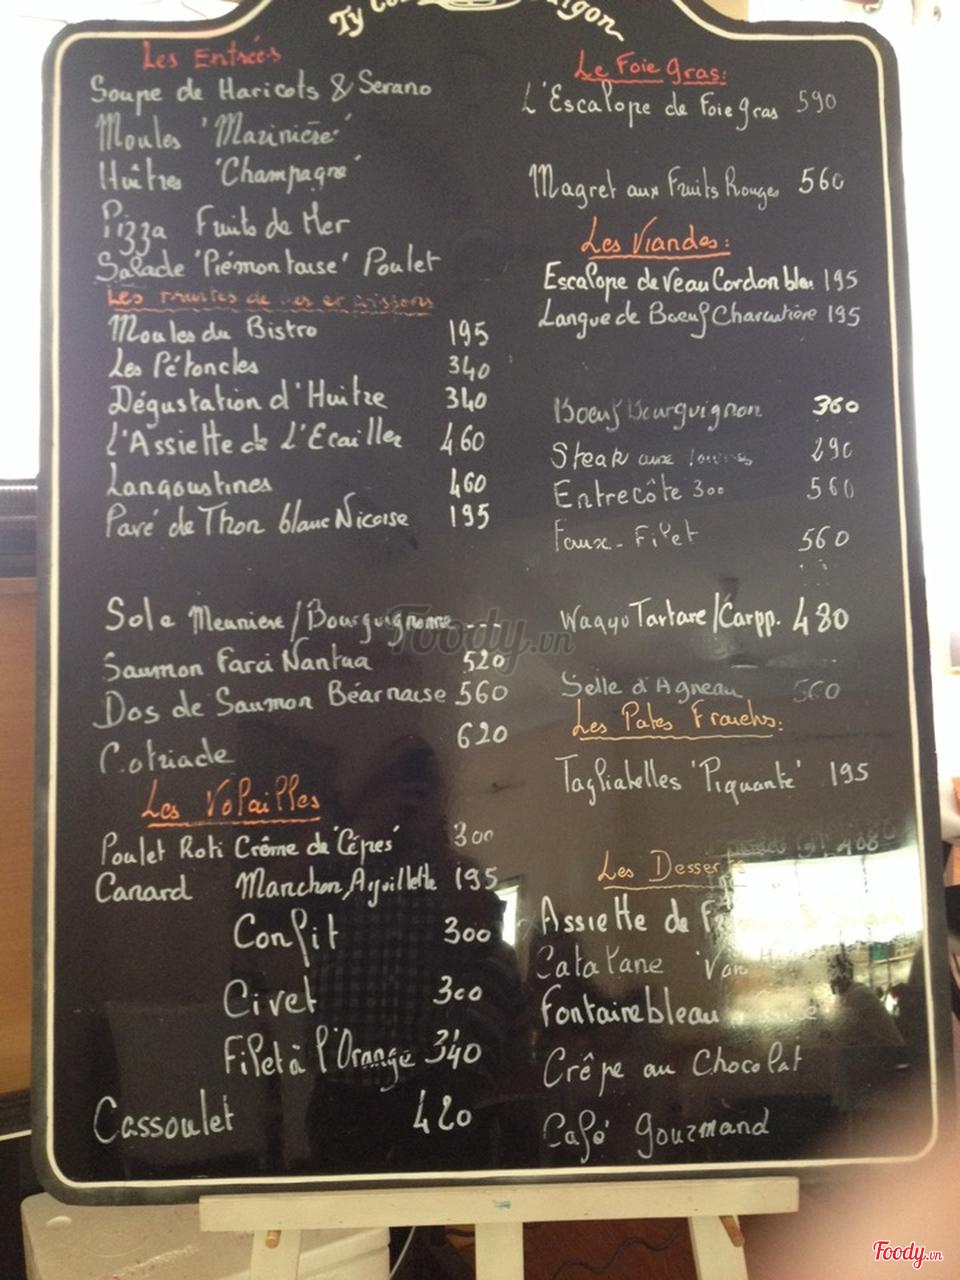 Les Entrées
Soupe de Haricots & Serano
Moules 'Marinière'
Huîtres 'Champagne'
Pizza Fruits de Mer
Salade 'Piémontaise' Poulet
Moules du Bistro 195
Les Pétoncles 340
Dégustation d'Huitre 340
L'Assiette de L'Ecailler 460
Langoustines 460
Pavé de Thon blanc Nicoise 195
Sole Meunière/Bourguignonne ---
Saumon Farci Nantua 520
Dos de Saumon Béarnaise 560
Cotriade 620
Les Volailles
Poulet Roti Crême de 'Cépes' 300
Canard Manchon, Aguillette 195
Confit 300
Civet 300
Filet à l'Orange 340
Cassoulet 420
Le Foie Gras:
L'Escalope de Foie gras 590
Magret aux Fruits Rouges 560
Les Viandes:
Escalope de Veau Cordon bleu 195
Langue de Boeuf Charcutière 195
Boeuf Bourguignon 360
Steak aux 290
Entrecôte 300 560
Faux-Filet 560
Wagyu Tartare/Carpp. 480
Selle d'Agneau 560
Les Pates Fraichs:
Tagliatelles 'Piquante' 195
Les Desserts
Assiette de
Catalane
Fontainebleau
Crêpe au Chocolat
Café gourmand
Foody.vn
Foody.vn